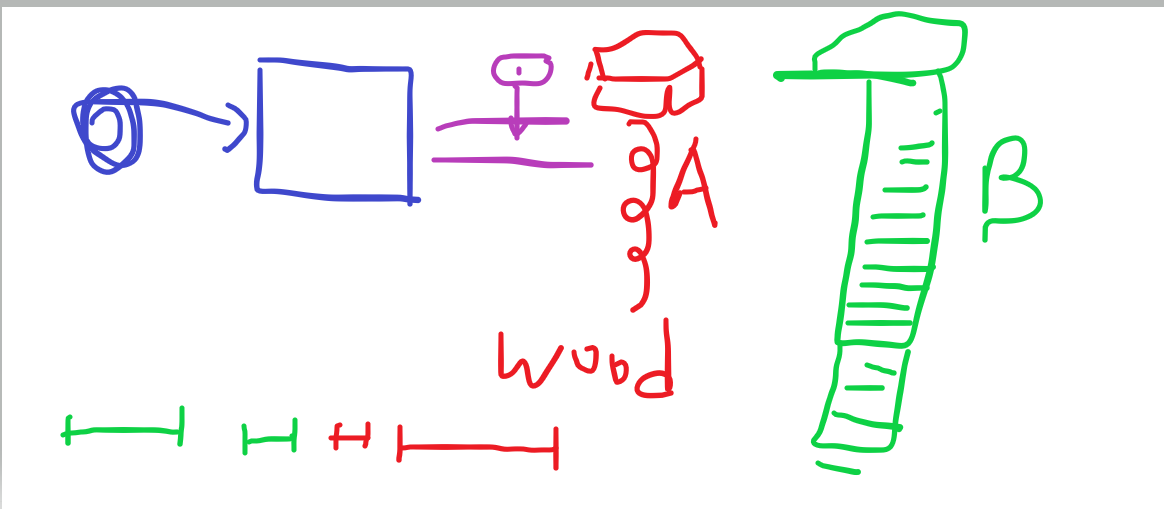 A
B
Wood